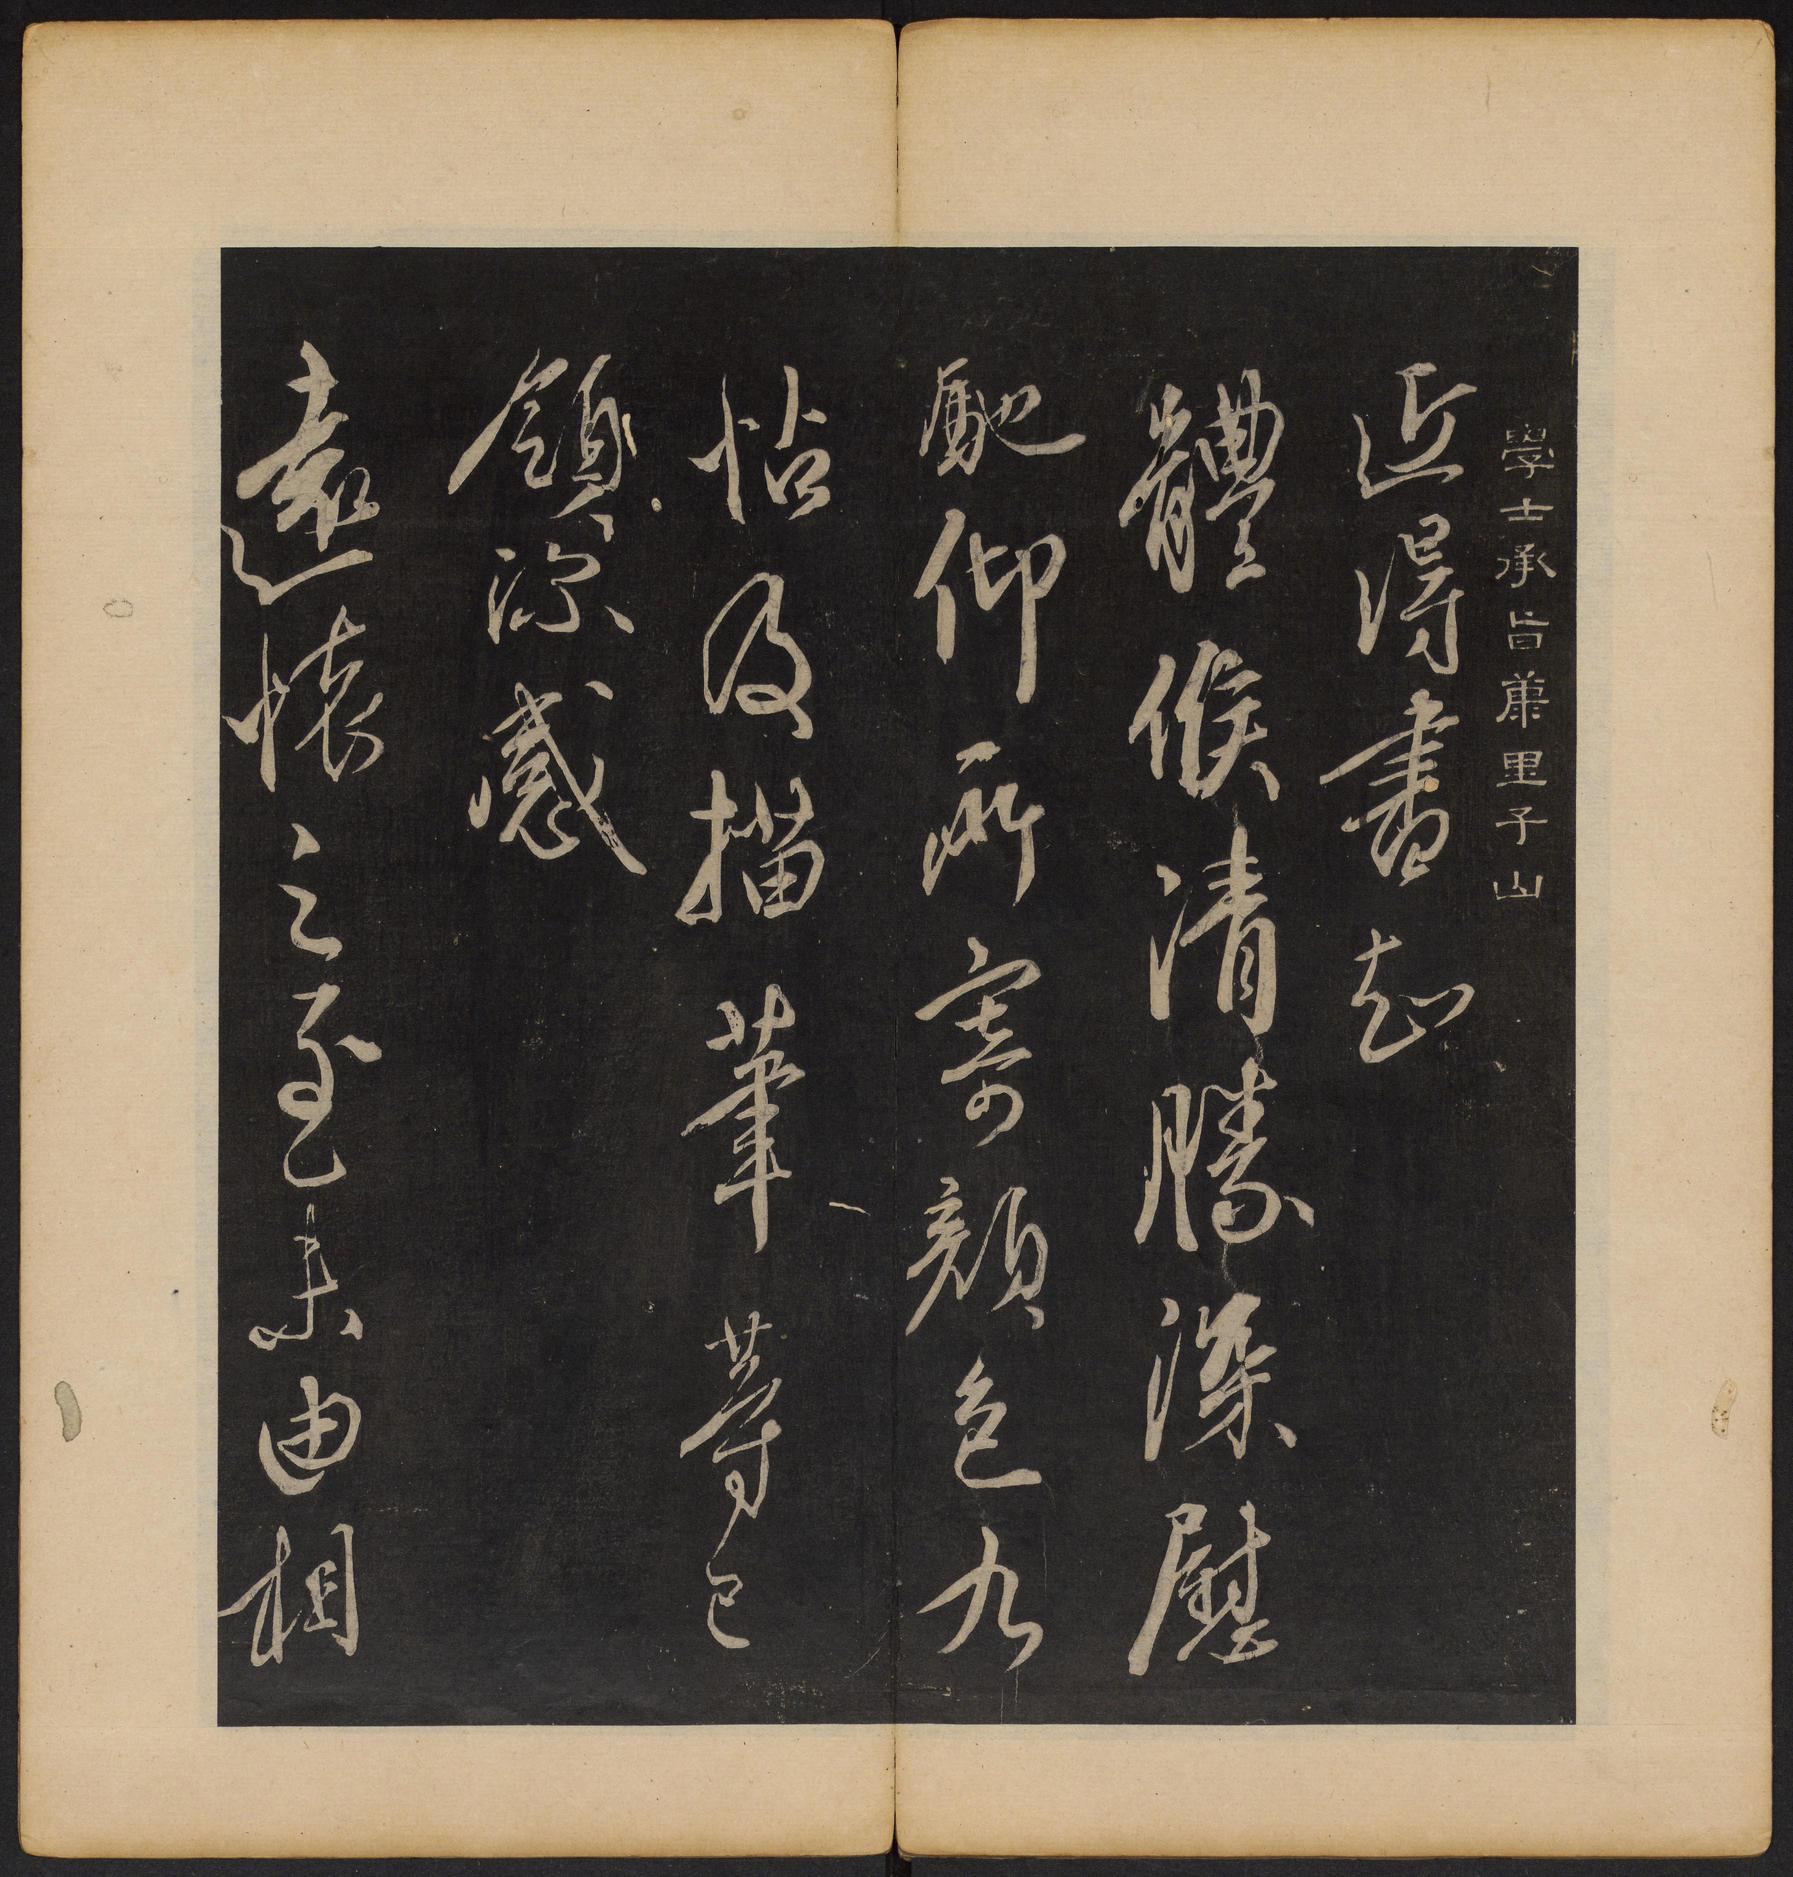 學士承旨康里子山
近得書知
體候清勝深慰
馳仰所寄顏色九
帖及描筆等已
領深感
遠懷之至未由相